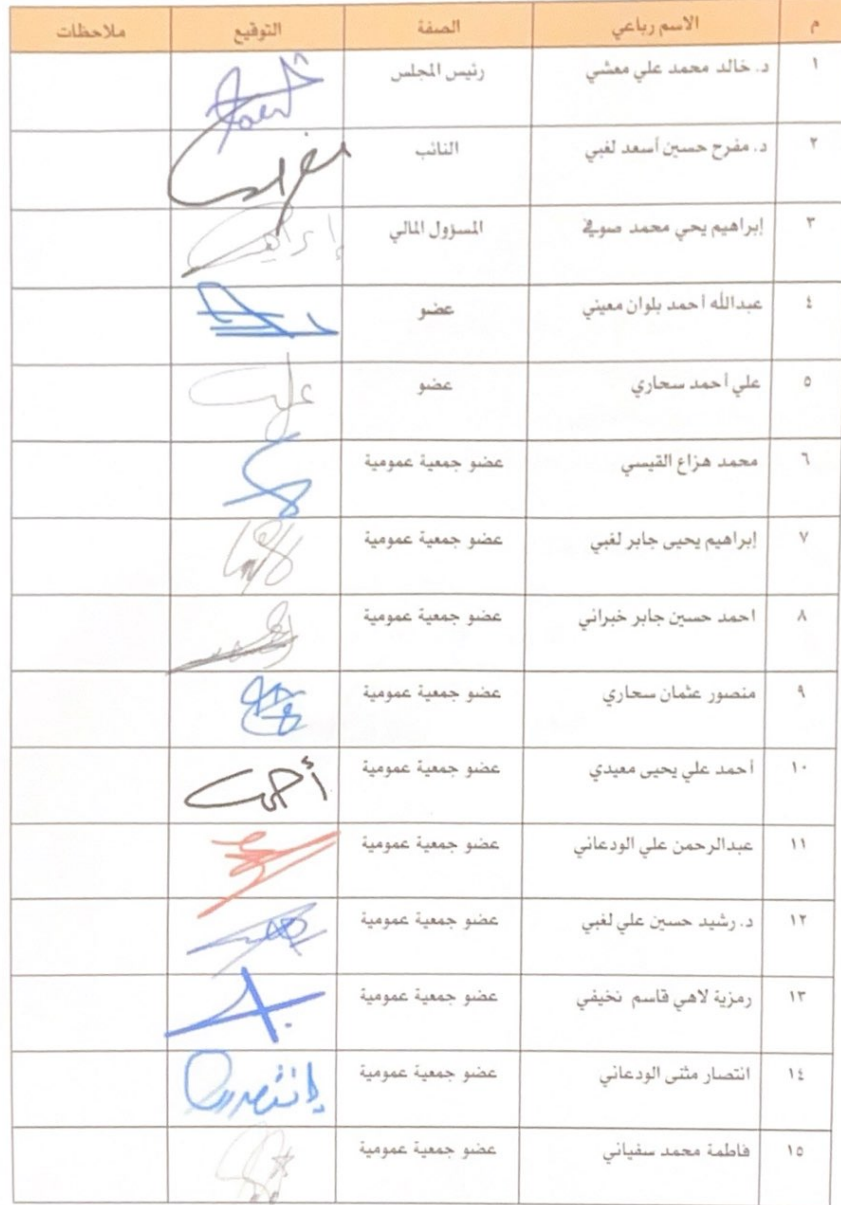 م الاسم رباعي الصفة التوقيع ملاحظات
١ د. خالد محمد علي معشي رئيس المجلس
٢ د. مفرح حسين أسعد لغبي النائب
٣ إبراهيم يحي محمد صوفي المسؤول المالي
٤ عبدالله أحمد بلوان معيني عضو
٥ علي أحمد سحاري عضو علي
٦ محمد هزاع القيسي عضو جمعية عمومية
٧ إبراهيم يحيى جابر لغبي عضو جمعية عمومية
٨ احمد حسين جابر خبراني عضو جمعية عمومية
٩ منصور عثمان سحاري عضو جمعية عمومية
١٠ أحمد علي يحيى معيدي عضو جمعية عمومية أحمد
١١ عبدالرحمن علي الودعاني عضو جمعية عمومية
١٢ د. رشيد حسين علي لغبي عضو جمعية عمومية
١٣ رمزية لاهي قاسم نخيفي عضو جمعية عمومية
١٤ انتصار مثنى الودعاني عضو جمعية عمومية
١٥ فاطمة محمد سفياني عضو جمعية عمومية